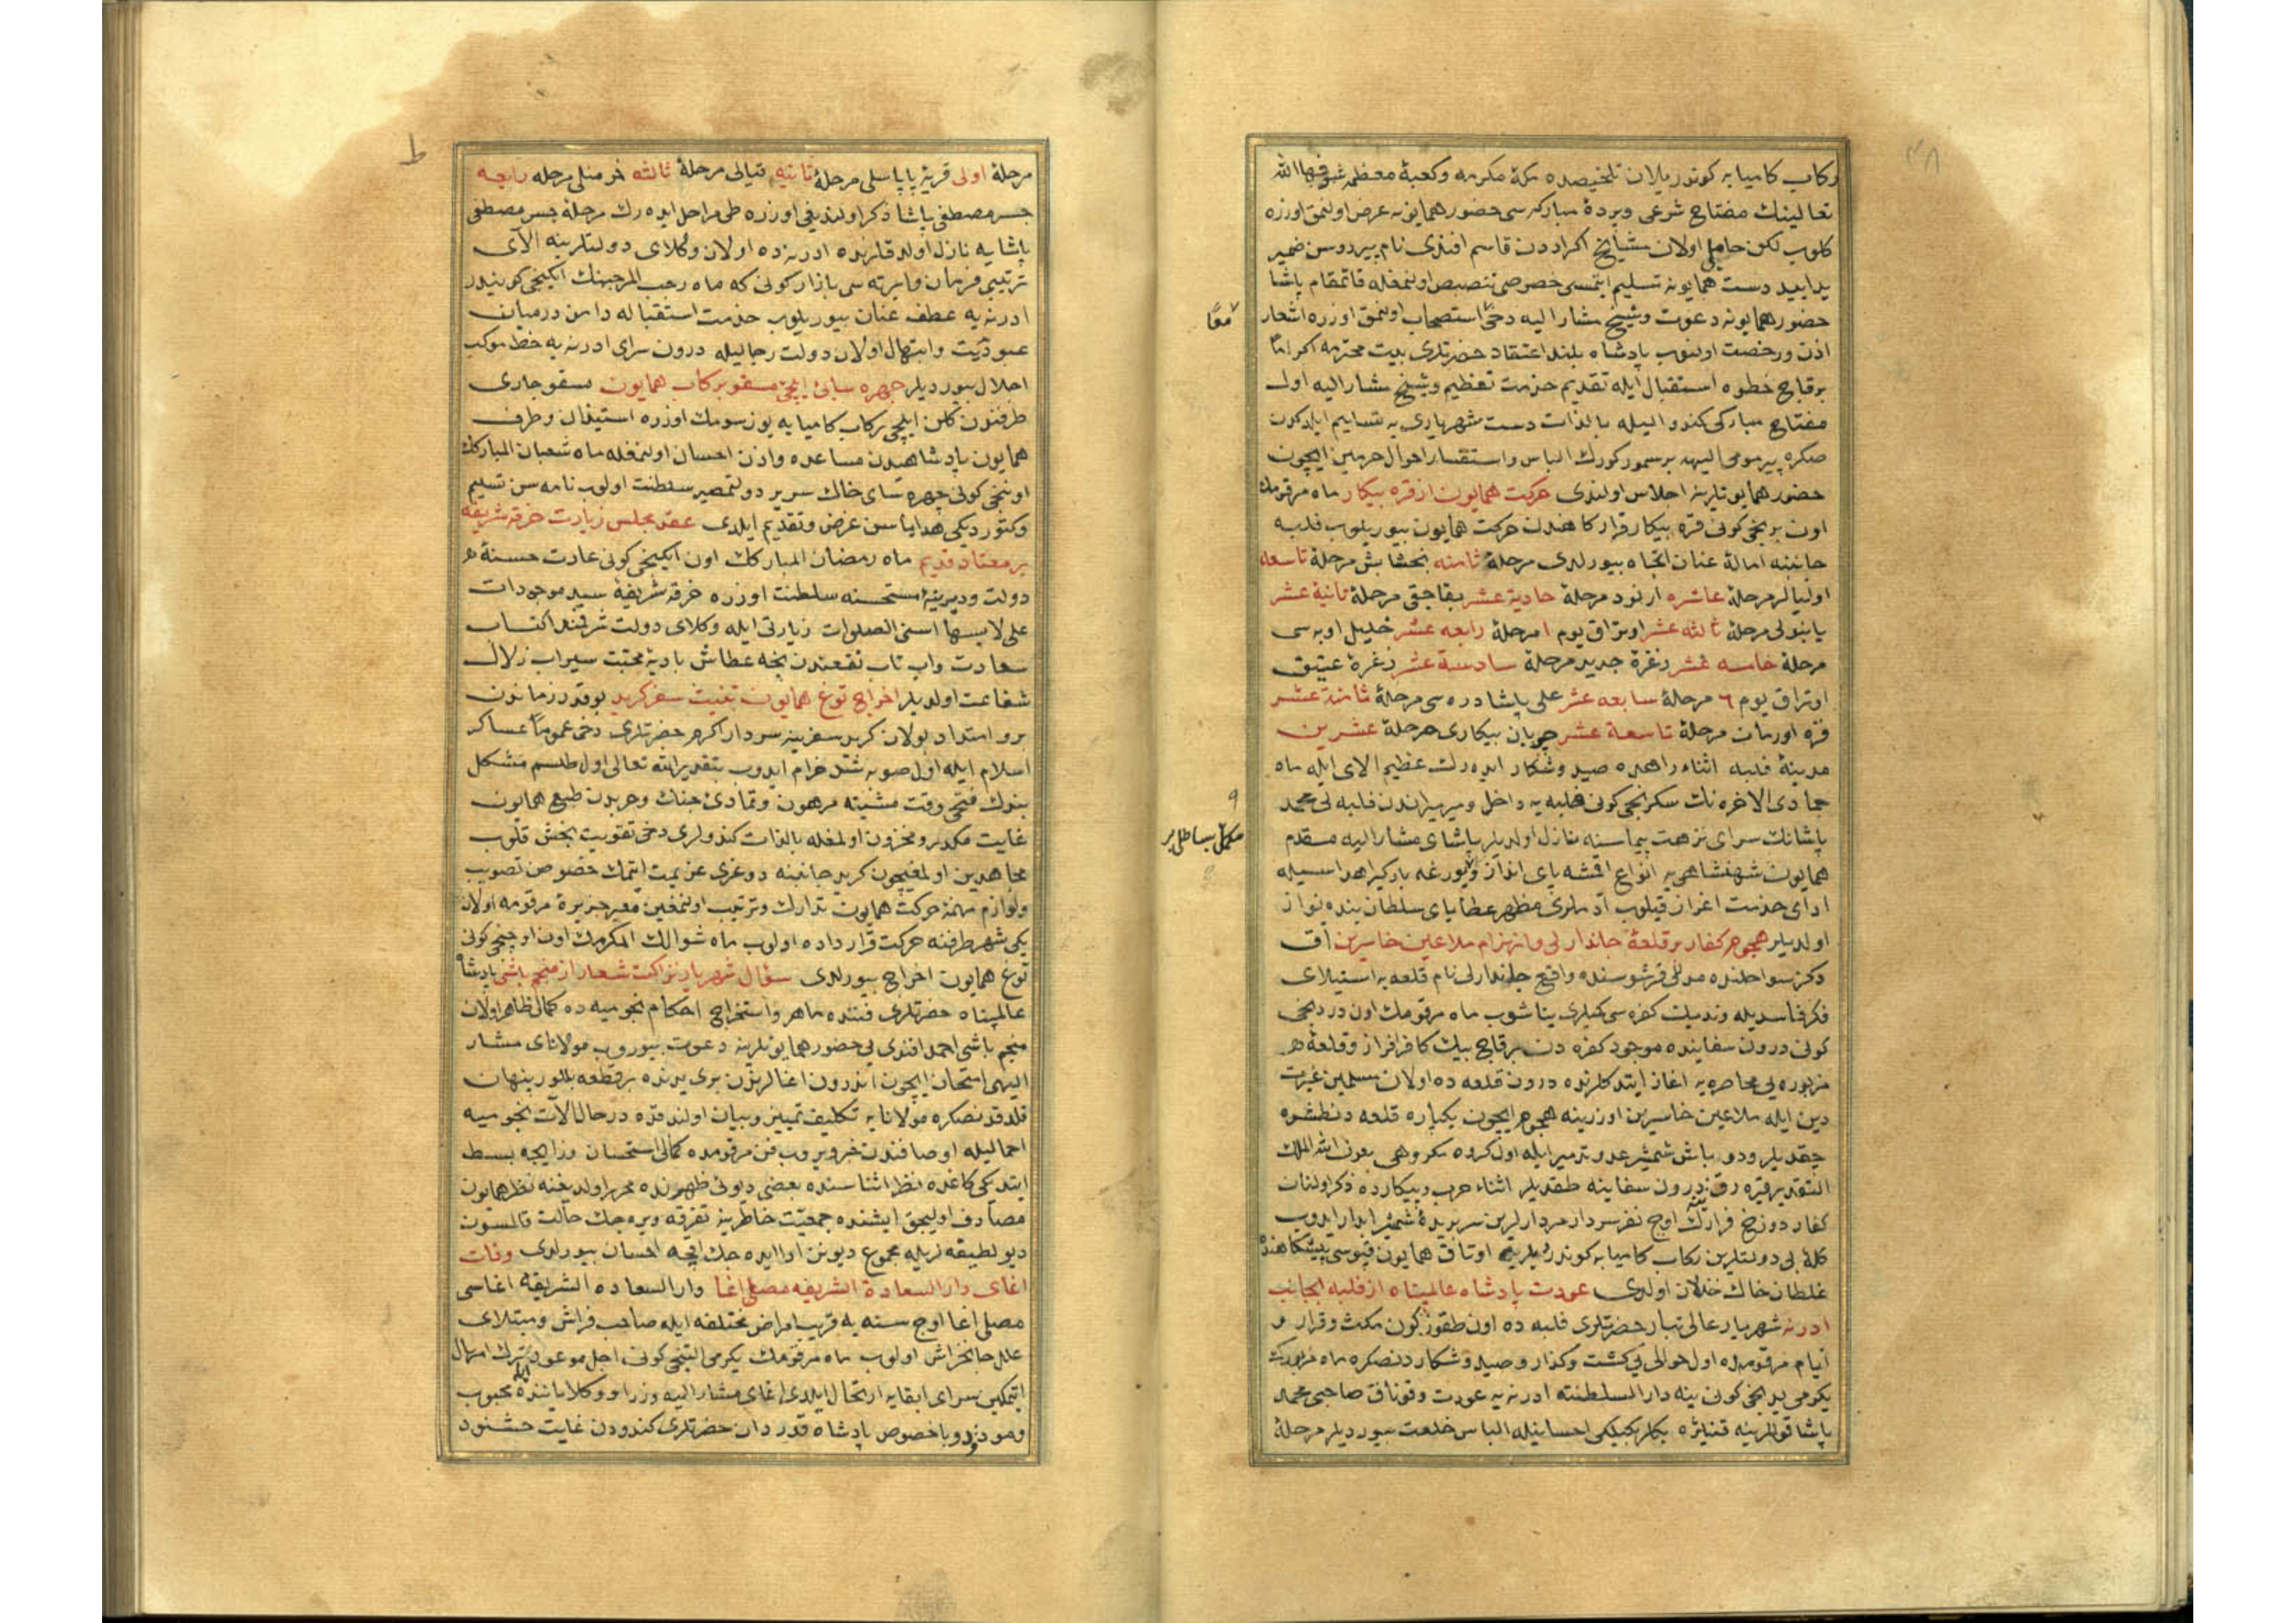 رکاب کامیابه کوندریلان تلخیصده مکهٔ مکرمه وکعبهٔ معظمه شرفهاالله
تعالینك مفتاح شرعی وبردهٔ مبارکه سی حضور همایونه عرض اولنمق اوزره
کلوب لکن حامل اولان مشایخ اکراددن قاسم افندی نام پیر دوسن ضمیر
یدابید دست همایونه تسلیم ایتمسی خصوصی تنصیص اولنمغله قائمقام پاشا
حضور همایونه دعوت وشیخ مشارالیه دخی استصحاب اولنمق اوزره اشعار
اذن ورخصت اولنوب پادشاه بلند اعتقاد حضرتلری بیت محترمه اکراماً
برقاچ خطوه استقبال ایله تقدیم خدمت تعظیم وشیخ مشارالیه اول
مفتاح مبارکی کندو الیله بالذات دست شهریاری یه تسلیم ایلدکدن
صکره پیر مومی الیهه برسمور کورك الباس واستفسار احوال حرمین ایچون
حضور همایونلرینه اجلاس اولندی حرکت همایون از قره بیکار ماه مرقومك
اون برنجی کونی قره بیکار قرارکاهندن حرکت همایون بیوریلوب فلبه
جانبنه امالهٔ عنان اتجاه بیورلدی مرحلهٔ ثامنه بخشایش مرحلهٔ تاسعه
اولیالر مرحلهٔ عاشره ارنود مرحلهٔ حادیة عشر بقاجق مرحلهٔ ثانیة عشر
یانبولی مرحلهٔ ثالثه عشر اوتراق یوم ١ مرحلهٔ رابعه عشر خلیل اوبه سی
مرحلهٔ خامسه عشر زغرهٔ جدید مرحلهٔ سادسة عشر زغرهٔ عتیق
اوتراق یوم ٦ مرحلهٔ سابعه عشر علی پاشا دره سی مرحلهٔ ثامنة عشر
قره اورمان مرحلهٔ تاسعة عشر چوبان بیکاری مرحلهٔ عشرین
مدینهٔ فلبه اثناء راهده صید وشکار ایده رك عظیم الای ایله ماه
جمادی الاخره نك سکزنجی کونی فلبه یه داخل ومیرمیراندن فلبه لی محمد
پاشانك سرای نزهت پیماسنه نازل اولدیلر پاشای مشارالیه مقدم
همایون شهنشاهی یه انواع اقمشه پای انداز ویورغه بارکیر اهداسیله
ادای خدمت اغراز قیلوب آدملری مظهر عطایای سلطان بنده نواز
اولدیلر هجوم کفار برقلعهٔ جاندارلی وانهزام ملاعین خاسرین آق
دکز سواحلنده مدللی قرشوسنده واقع جاندارلی نام قلعه یه استیلای
فکر فاسدیله وندیك کفره سی کمیلری یناشوب ماه مرقومك اون دردنجی
کونی درون سفاینده موجود کفره دن برقاچ بیك کافر افراز وقلعهٔ
مزبوره یی محاصره یه اغاز ایتدکلرنده درون قلعه ده اولان مسلمین غیرت
دین ایله ملاعین خاسرین اوزرینه هجوم ایچون یکپاره قلعه دن طشره
چقدیلر ودو باش شمشیر عدو تدمیر ایله اول کروه مکروهی بعون الله الملك
القدیر قیره رق درون سفاینه طقدیلر اثناء حرب وپیکارده ذکر اولنان
کفار دوزخ قرارك اوچ نفر سردار مردارلرین سر بریدهٔ شمشیر ابدار ایدوب
کلهٔ بی دولتلرین رکاب کامیابه کوندرمیلرینه اوتاق همایون قپوسی پیشکاهنده
غلطان خاك خذلان اولدی عودت پادشاه عالمپناه از فلبه بجانب
ادرنه شهریار عالی تبار حضرتلری فلبه ده اون طقوز کون مکث وقرار و
ایام مرقومده اول حوالی یی کشت وکذار وصید وشکاردن صکره ماه مزبورك
یکرمی یدنجی کونی ینه دارالسلطنته ادرنه یه عودت وقوناق صاحبی محمد
پاشا قوللرینه قنیژه بکلربکیلکی احسانیله الباس خلعت بیوردیلر مرحلهٔ
معًا
مکمل بساطلی بر
مرحلهٔ اولی قریهٔ پاپاسلی مرحلهٔ ثانیه قیالی مرحلهٔ ثالثه خرمنلی مرحله رابعه
جسر مصطفی پاشا ذکر اولندیغی اوزره طی مراحل ایده رك مرحلهٔ جسر مصطفی
پاشایه نازل اولدقلرنده ادرنه ده اولان وکلای دولتلرینه الای
ترتیبی فرمان وایرته سی بازار کونی که ماه رجب المرجبنك ایکنجی کونیدر
ادرنه یه عطف عنان بیوریلوب خدمت استقباله دامن درمیان
عبودیت وابتهال اولان دولت رجالیله درون سرای ادرنه یه خط موکب
اجلال بیوردیلر چهره سایئ ایلچئ مسقو برکاب همایون مسقو چاری
طرفندن کلن ایلچی رکاب کامیابه یوز سورمك اوزره استیذان وطرف
همایون پادشاهیدن مساعده واذن احسان اولنمغله ماه شعبان المبارکك
اوننجی کونی چهره سای خاك سریر دولتمصیر سلطنت اولوب نامه سن تسلیم
وکتوردیکی هدایاسن عرض وتقدیم ایلدی عقد مجلس زیارت خرقهٔ شریفه
بر معتاد قدیم ماه رمضان المبارکك اون ایکنجی کونی عادت حسنهٔ
دولت ودیرینهٔ مستحسنه سلطنت اوزره خرقهٔ شریفهٔ سید موجودات
علی لابسها اسنی الصلوات زیارتی ایله وکلای دولت شرفمند اکتساب
سعادت واب تاب نقعندن نجه عطاش بادیهٔ محبت سیراب زلال
شفاعت اولدیلر اخراج توغ همایون بنیت سفر کرید بوقدر زماندن
برو امتداد بولان کرید سفرینه سردار اکرم حضرتلری دخی عموماً عساکر
اسلام ایله اول صوبه شتاب خرام ایدوب بتقدیر الله تعالی اول طلسم مشکل
بنوك فتحی وقت مشیته مرهون وتمادئ جنك وحربدن طبع همایون
غایت مکدر ومحزون اولمغله بالذات کندولری دخی تقویت بخش قلوب
مجاهدین اولمغیچون کرید جانبنه دوغری عزیمت ایتمك خصوصن تصویب
ولوازم مهمهٔ حرکت همایون تدارك وترتیب اولنمغین معبر جزیرهٔ مرقومه اولان
یکی شهر طرفنه حرکت قرارداده اولوب ماه شوالك المکرمك اون اوچنجی کونی
توغ همایون اخراج بیورلدی سؤال شهریار نزاکت شعار از منجم باشی پادشاه
عالمپناه حضرتلری فننده ماهر واستخراج احکام نجومیه ده کمالی ظاهر اولان
منجم باشی احمد افندی یی حضور همایونلرینه دعوت بیوروب مولانای مشار
الیهی امتحان ایچون اندرون اغالرندن بری یدنده برقطعه بللور پنهان
قلدقدنصکره مولانایه تکلیف تمییز وبیان اولندقده درحال آلات نجومیه
اعمالیله اوصافندن خبر ویروب فن مرقومده کمالی استحسان وزایجه بسط
ایتدیکی کاغده نظر اثناسنده بعضی دیونی ظهرنده محرر اولدیغنه نظر همایون
مصادف اولیجق ایشنده جمعیت خاطرینه تفرقه ویره جك حالت قالمسون
دیو لطیفه لریله مجموع دیونن ادا ایده جك اقچه احسان بیورلدی وفات
اغای دارالسعادة الشریفه مصلی اغا دارالسعاده الشریفه اغاسی
مصلی اغا اوچ سنه یه قریب امراض مختلفه ایله صاحب فراش ومبتلای
علل جانخراش اولوب ماه مرقومك یکرمی التنجی کونی اجل موعود ترك امهال
ایتمکین سرای ابقایه ارتحال ایلدی اغای مشارالیه وزرا ووکلا یاننده محبوب
وممدوح وباخصوص پادشاه قدردان حضرتلری کندودن غایت خشنود